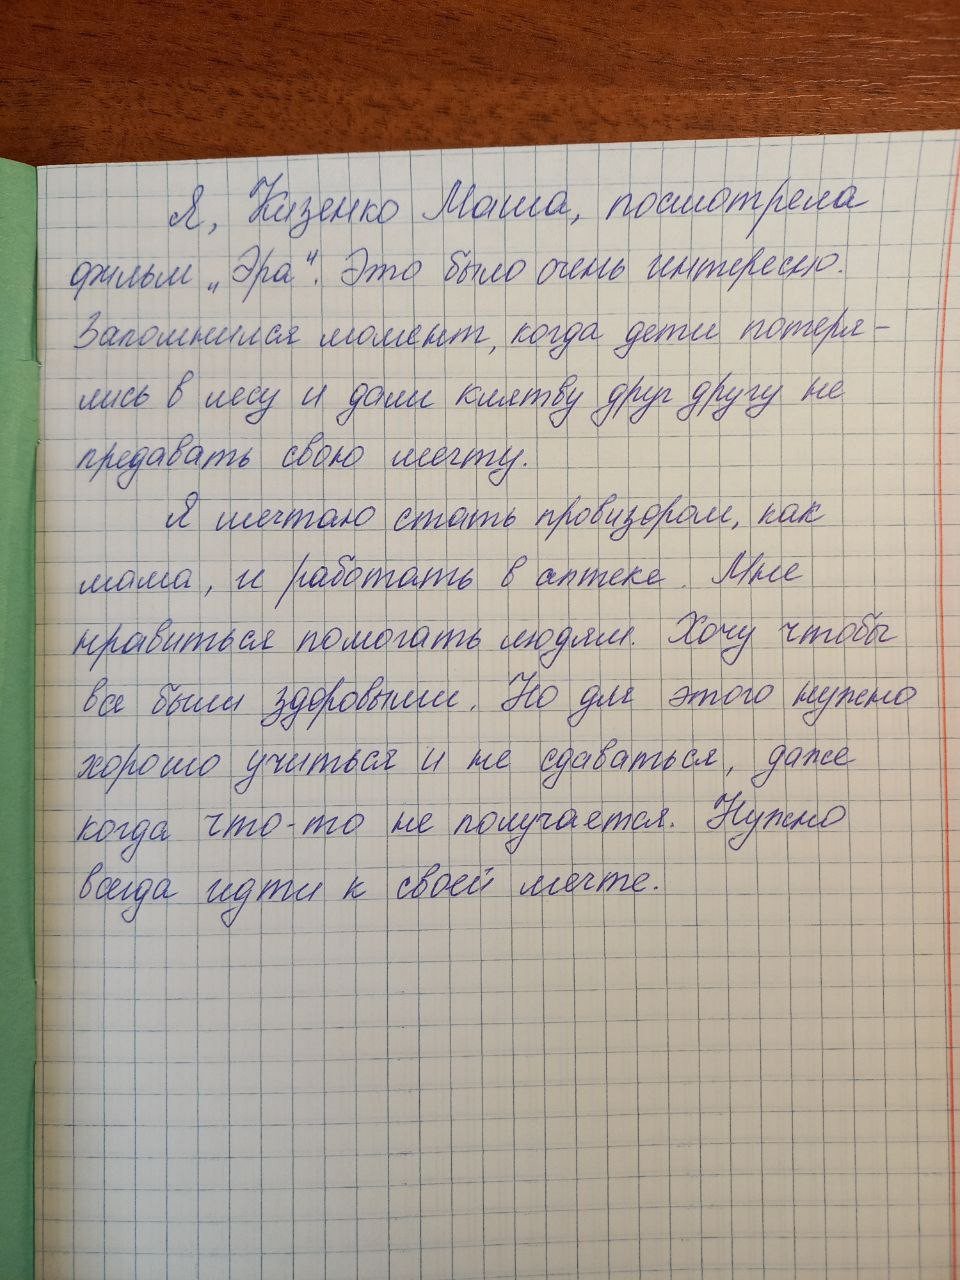 Я, Кизенко Маша, посмотрела
фильм „Эра“. Это было очень интересно.
Запомнился момент, когда дети потеря-
лись в лесу и дали клятву друг другу не
предавать свою мечту.
Я мечтаю стать провизором, как
мама, и работать в аптеке. Мне
нравиться помогать людям. Хочу чтобы
все были здоровыми. Но для этого нужно
хорошо учиться и не сдаваться, даже
когда что-то не получается. Нужно
всегда идти к своей мечте.